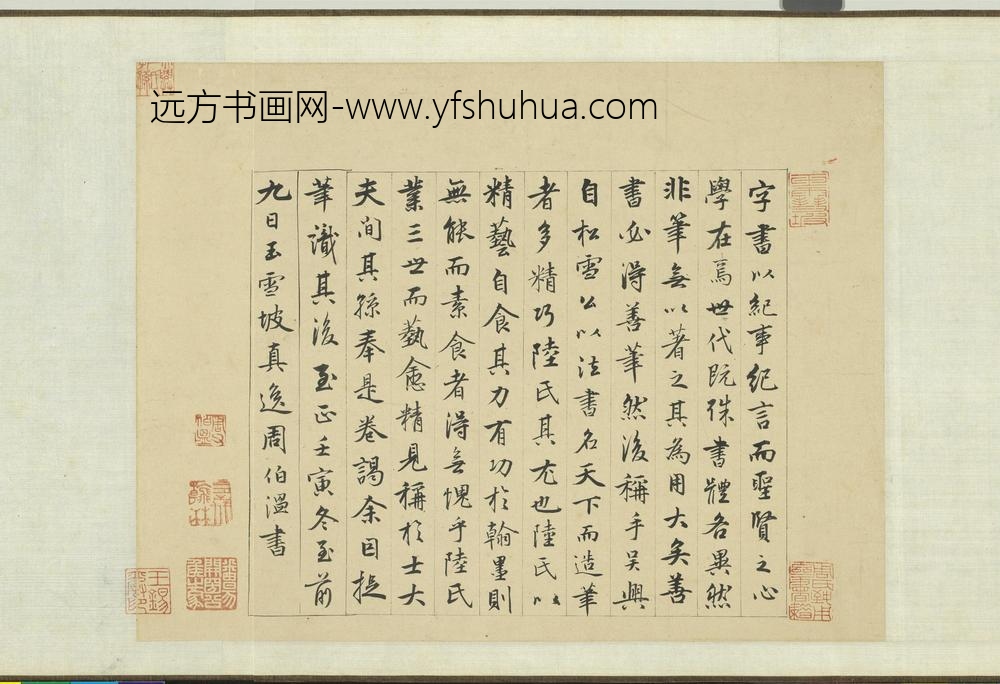 远方书画网-www.yfshuhua.com
字書以紀事紀言而聖賢之心
學在焉世代既殊書體各異然
非筆無以著之其為用大矣善
書必得善筆然後稱手吴興
自松雪公以法書名天下而造筆
者多精巧陸氏其尤也陸氏以
精藝自食其力有功於翰墨則
無能而素食者得無愧乎陸氏
業三世而藝愈精見稱於士大
夫間其孫奉是卷謁余因捉
筆識其後至正壬寅冬至前
九日玉雪坡真逸周伯温書
王錫